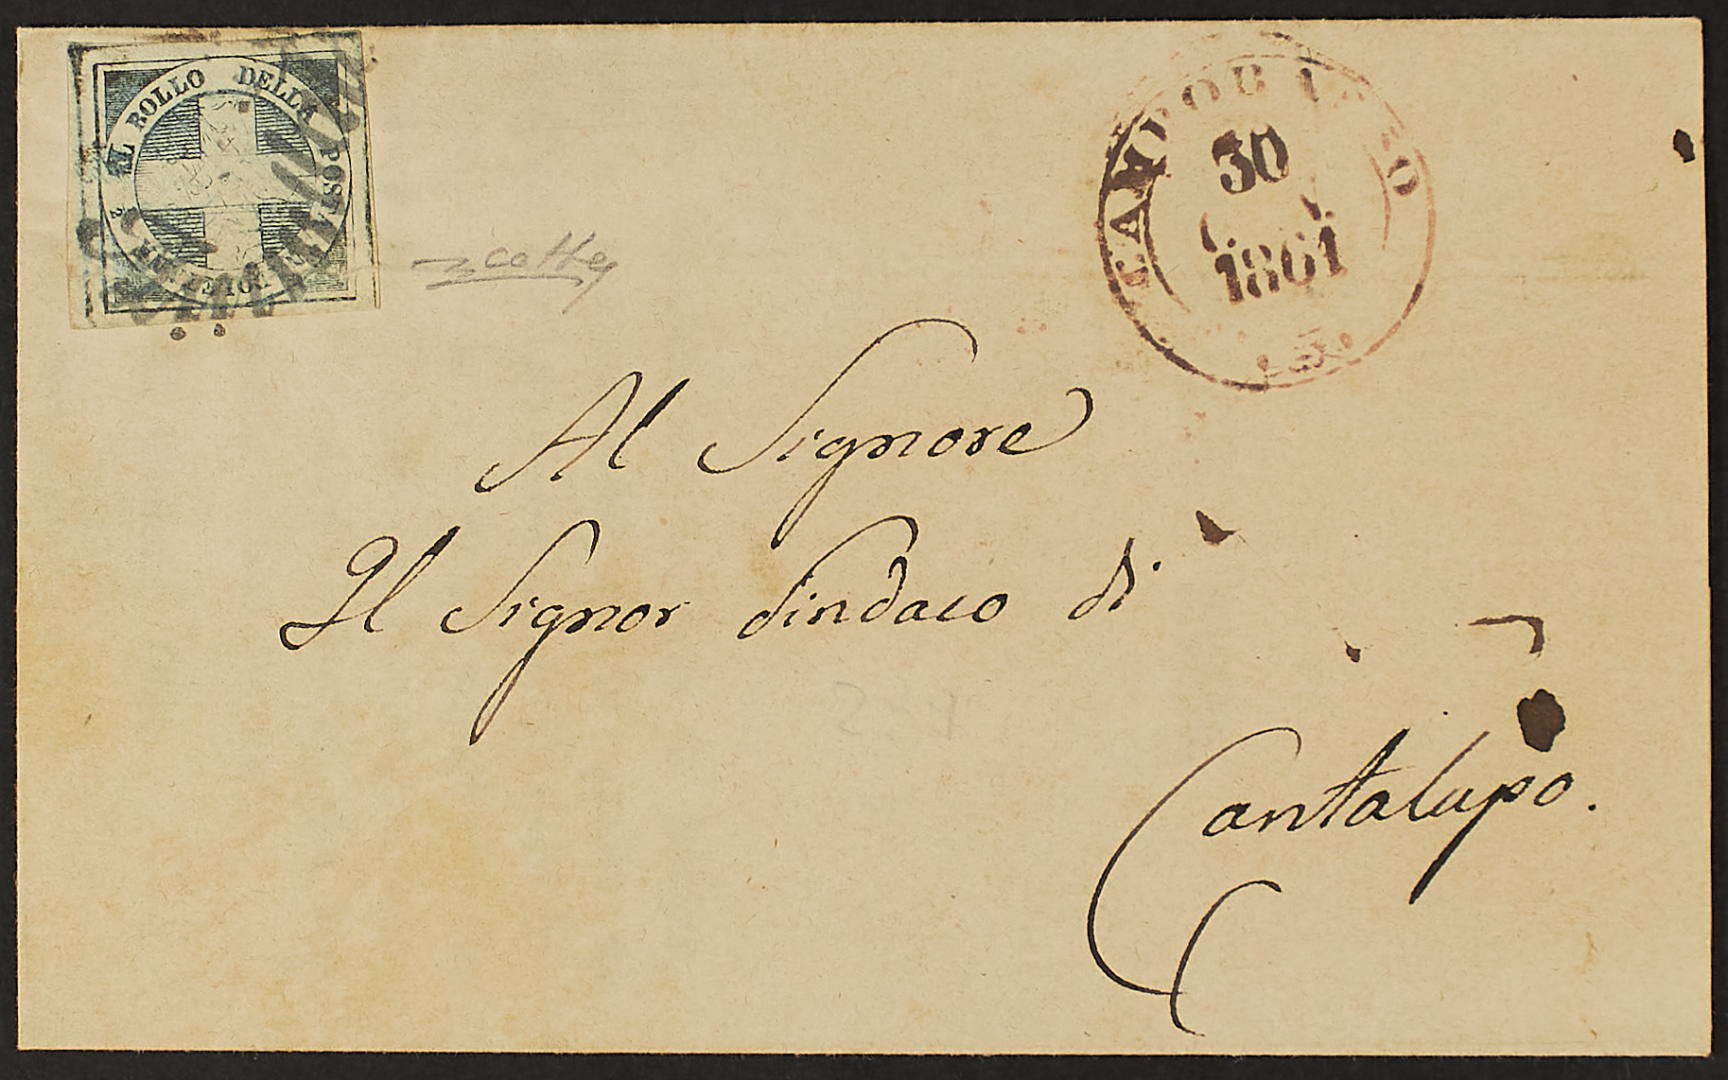 BOLLO DELLA POSTA
CAMPOBASSO
30
1861
Al Signore
Il Signor Sindaco di
Cantalupo.